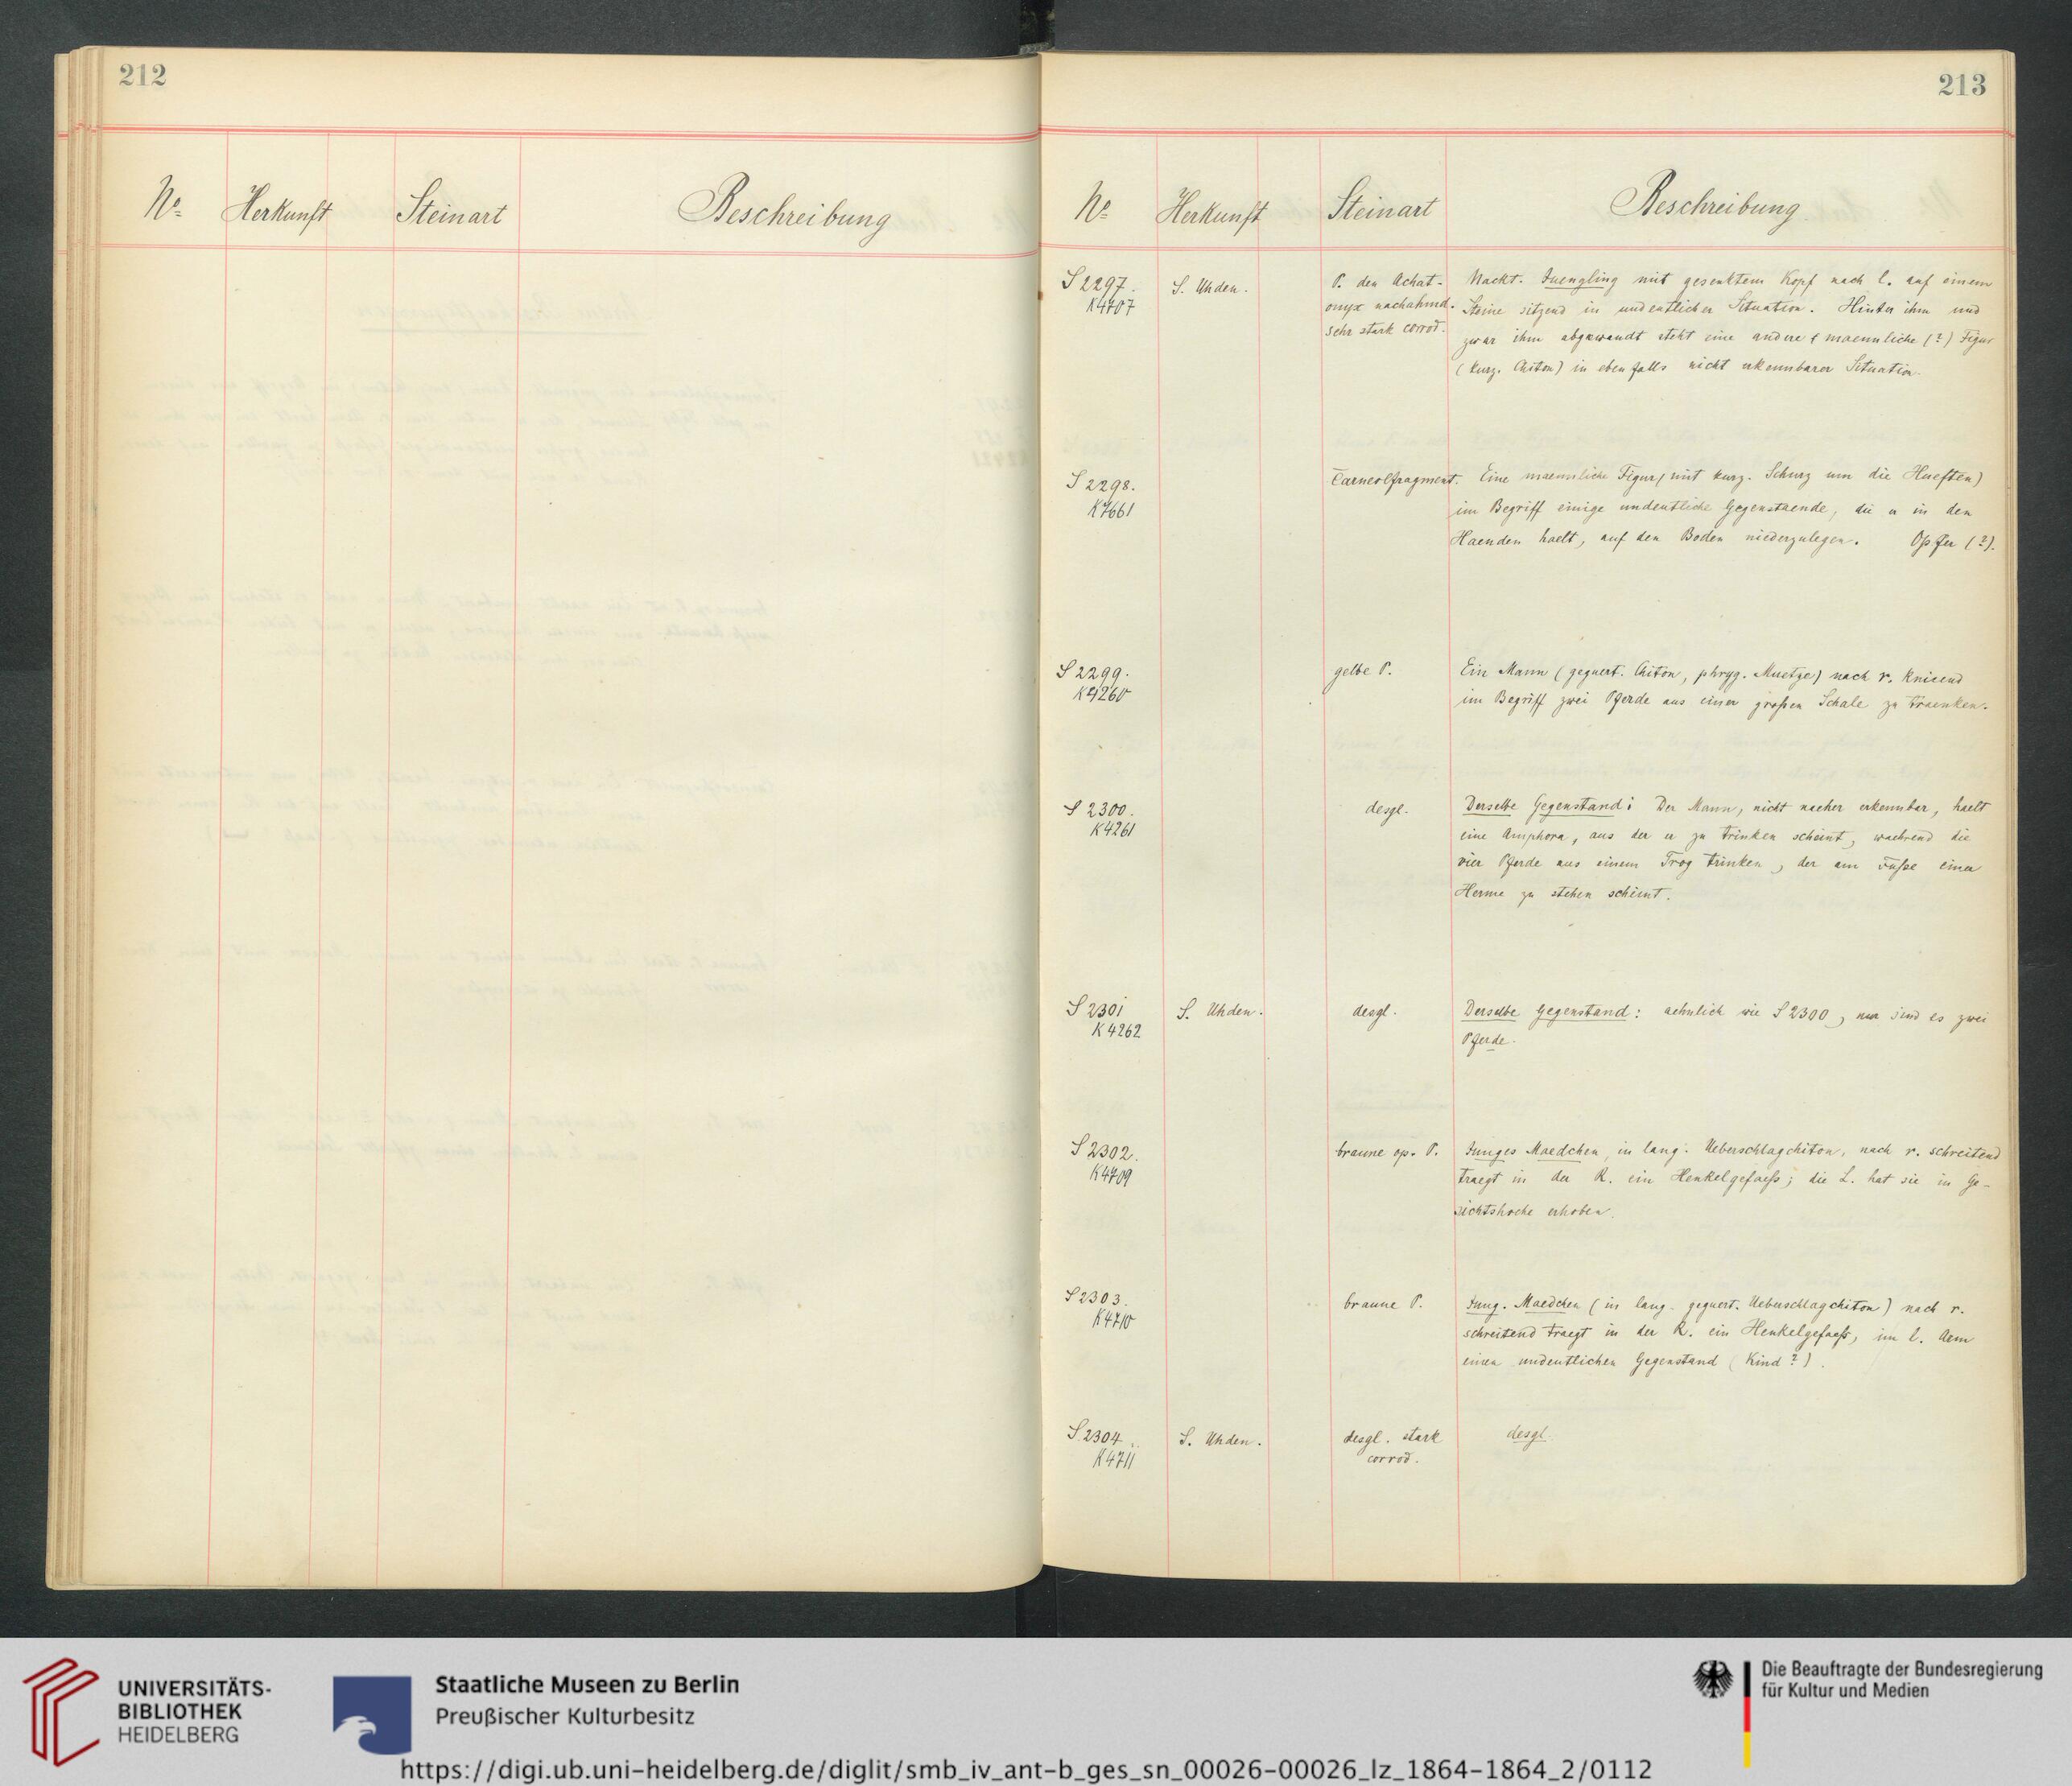 212
No Herkunft Steinart Beschreibung
213
No Herkunft Steinart Beschreibung
S 2297. S. Uhden. P. den Achat- Nackt. Juengling mit gesenktem Kopf nach l. auf einem
K4707 onyx nachahmd. Steine sitzend in undeutlicher Situation. Hinter ihm und
sehr stark corrod. zwar ihm abgewandt steht eine andere maennliche (?) Figur
(kurz. Chiton) in ebenfalls nicht erkennbarer Situation.
S 2298. Carneolfragment. Eine maennliche Figur (mit kurz. Schurz um die Hueften)
K7661 im Begriff einige undeutliche Gegenstaende, die er in den
Haenden haelt, auf den Boden niederzulegen. Opfer (?).
S 2299. gelbe P. Ein Mann (geguert. Chiton, phryg. Muetze) nach r. knieend
K4260 im Begriff zwei Pferde aus einer großen Schale zu traenken.
S 2300. desgl. Derselbe Gegenstand: Der Mann, nicht naeher erkennbar, haelt
K4261 eine Amphora, aus der er zu trinken scheint, waehrend die
vier Pferde aus einem Trog trinken, der am Fuße einer
Herme zu stehen scheint.
S 2301 S. Uhden. desgl. Derselbe Gegenstand: aehnlich wie S 2300, nur sind es zwei
K4262 Pferde.
S 2302. braune op. P. Junges Maedchen, in lang. Ueberschlagchiton, nach r. schreitend
K4709 traegt in der R. ein Henkelgefaeß; die L. hat sie in Ge-
sichtshoehe erhoben.
S 2303. braune P. Jung. Maedchen (in lang. geguert. Ueberschlagchiton) nach r.
K4710 schreitend traegt in der R. ein Henkelgefaeß, im l. Arm
einen undeutlichen Gegenstand (Kind?).
S 2304. S. Uhden. desgl. stark desgl.
K4711 corrod.
UNIVERSITÄTS-
BIBLIOTHEK
HEIDELBERG
Staatliche Museen zu Berlin
Preußischer Kulturbesitz
Die Beauftragte der Bundesregierung
für Kultur und Medien
https://digi.ub.uni-heidelberg.de/diglit/smb_iv_ant-b_ges_sn_00026-00026_lz_1864-1864_2/0112